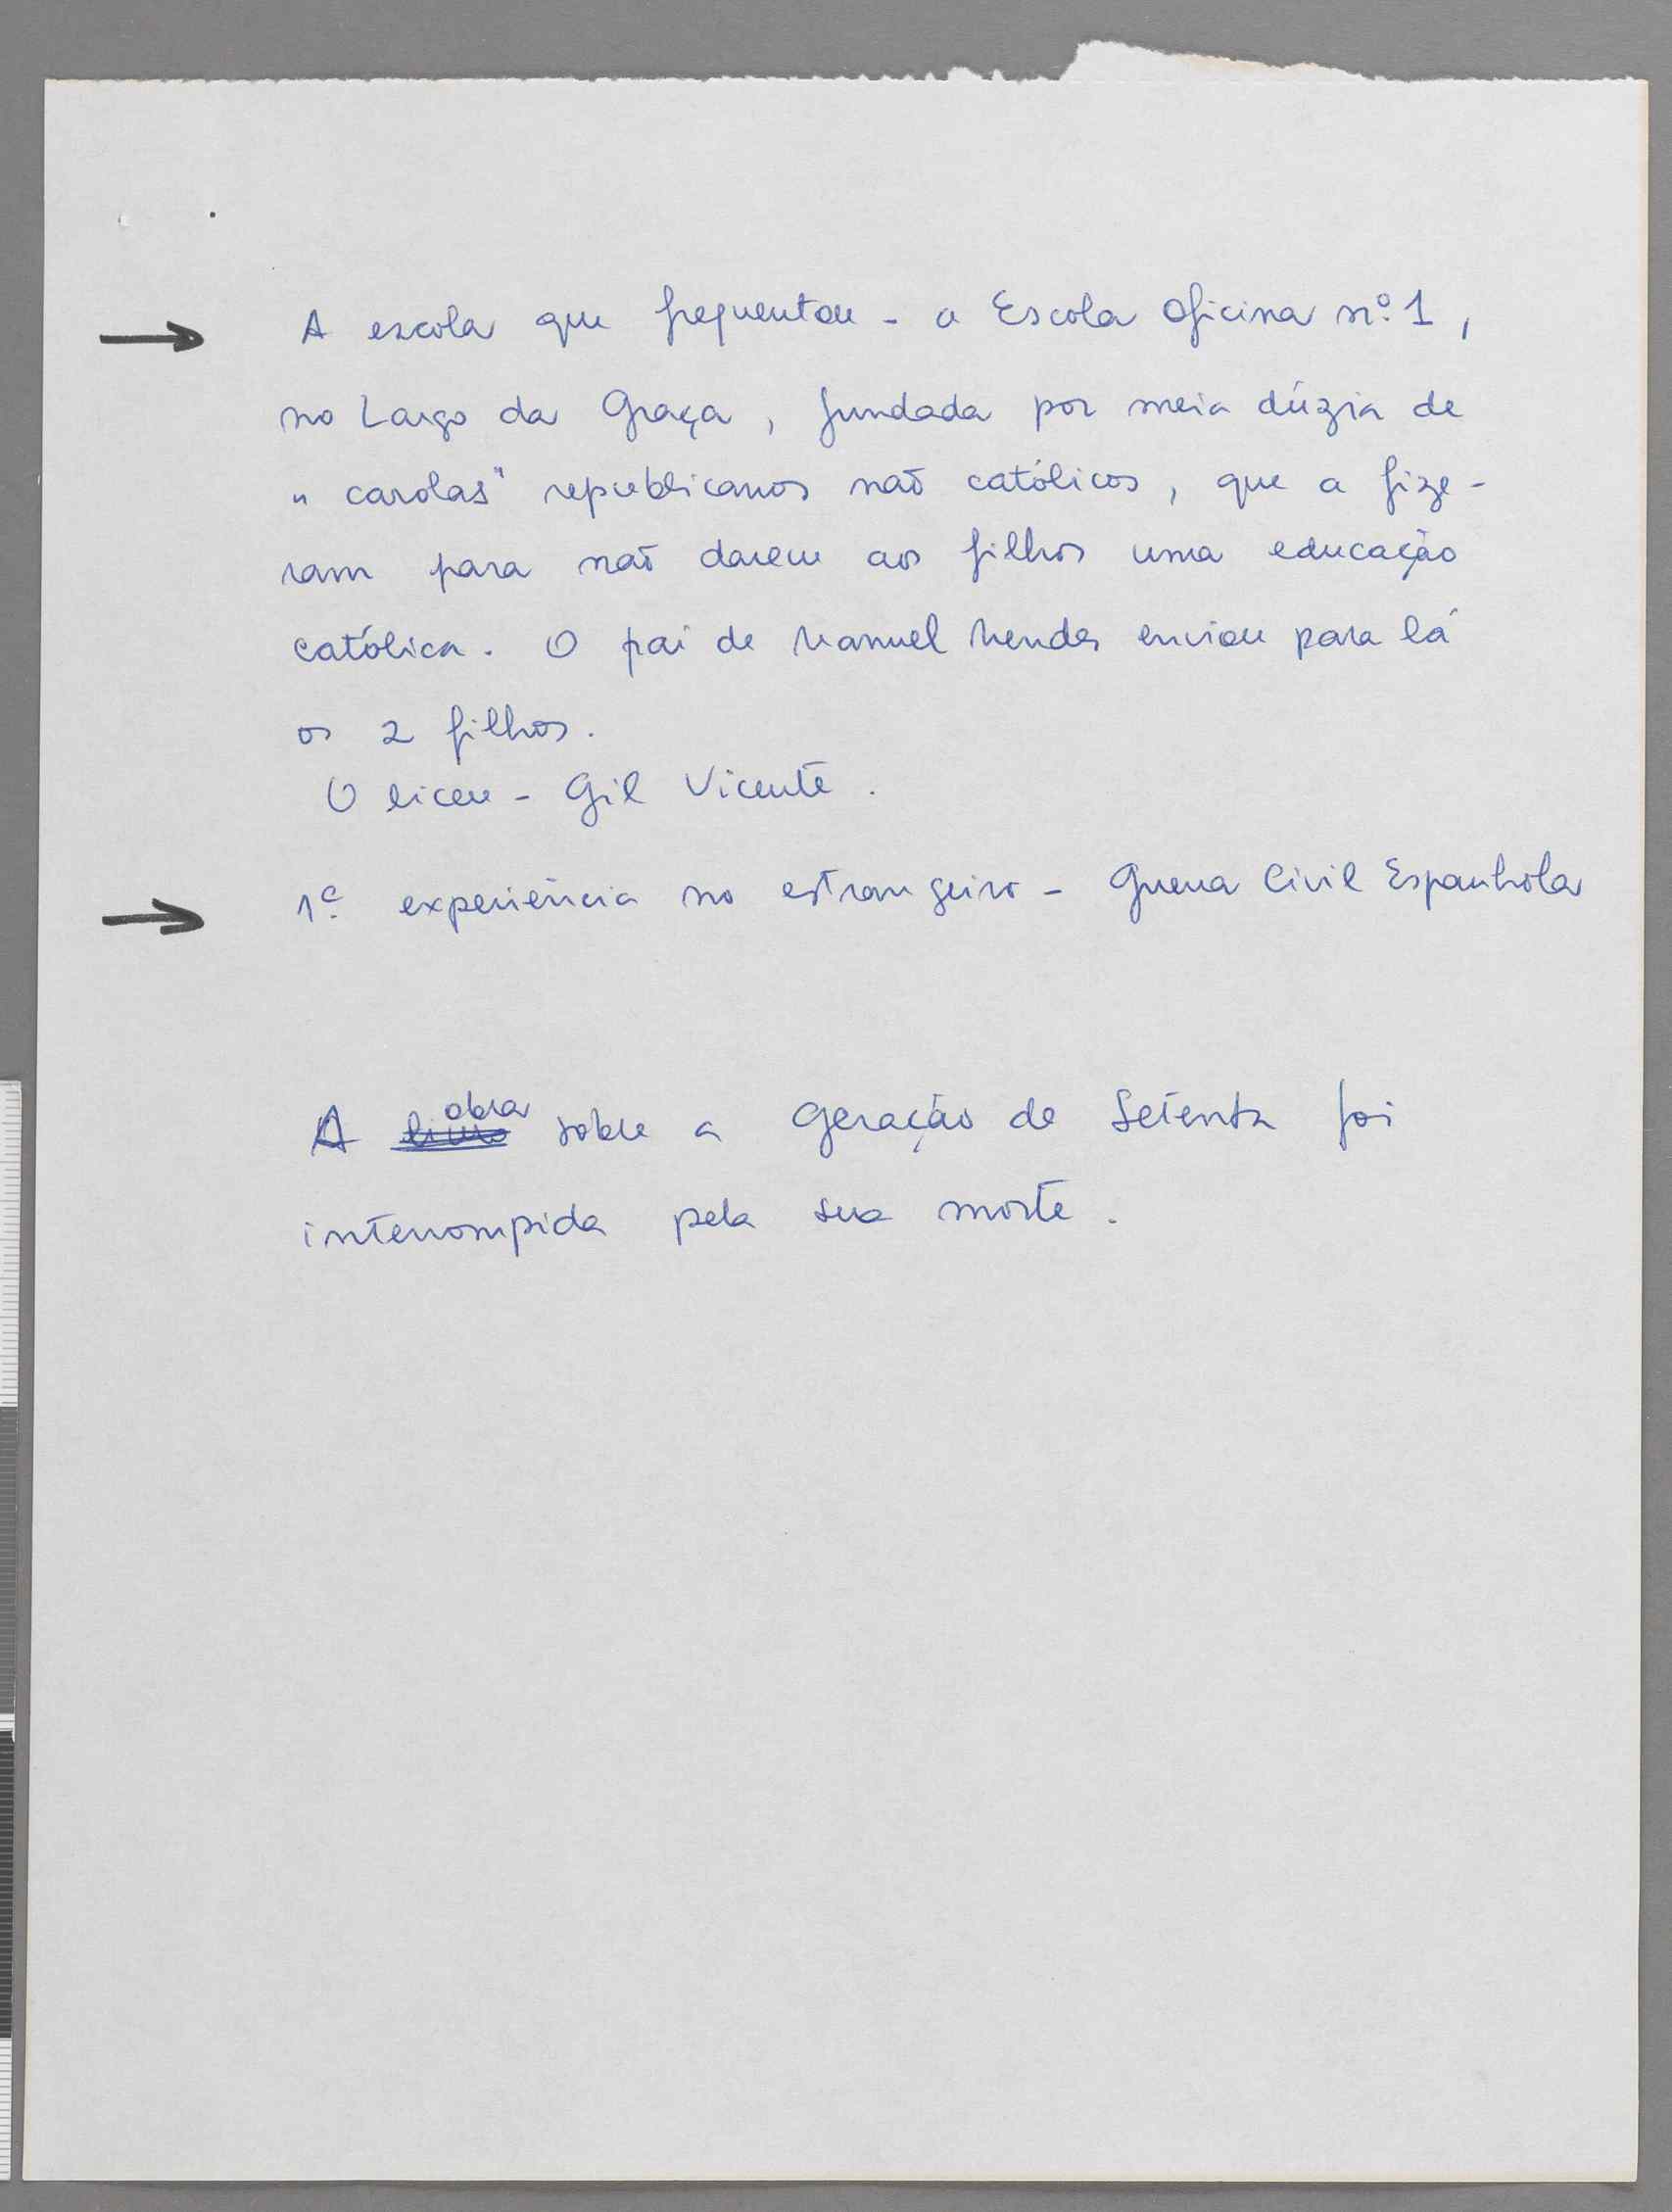 → A escola que frequentou - a Escola Oficina nº 1,
no Largo da Graça, fundada por meia dúzia de
"carolas" republicanos não católicos, que a fize-
ram para não darem aos filhos uma educação
católica. O pai de Manuel Mendes enviou para lá
os 2 filhos.
O liceu - Gil Vicente.
→ 1ª experiência no estrangeiro - Guerra Civil Espanhola
A livro obra sobre a Geração de Setenta foi
interrompida pela sua morte.